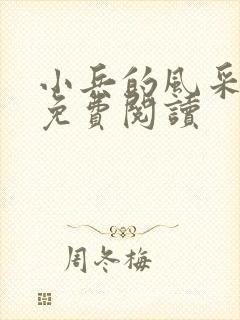 小岳的風采
免費閱讀
周冬梅